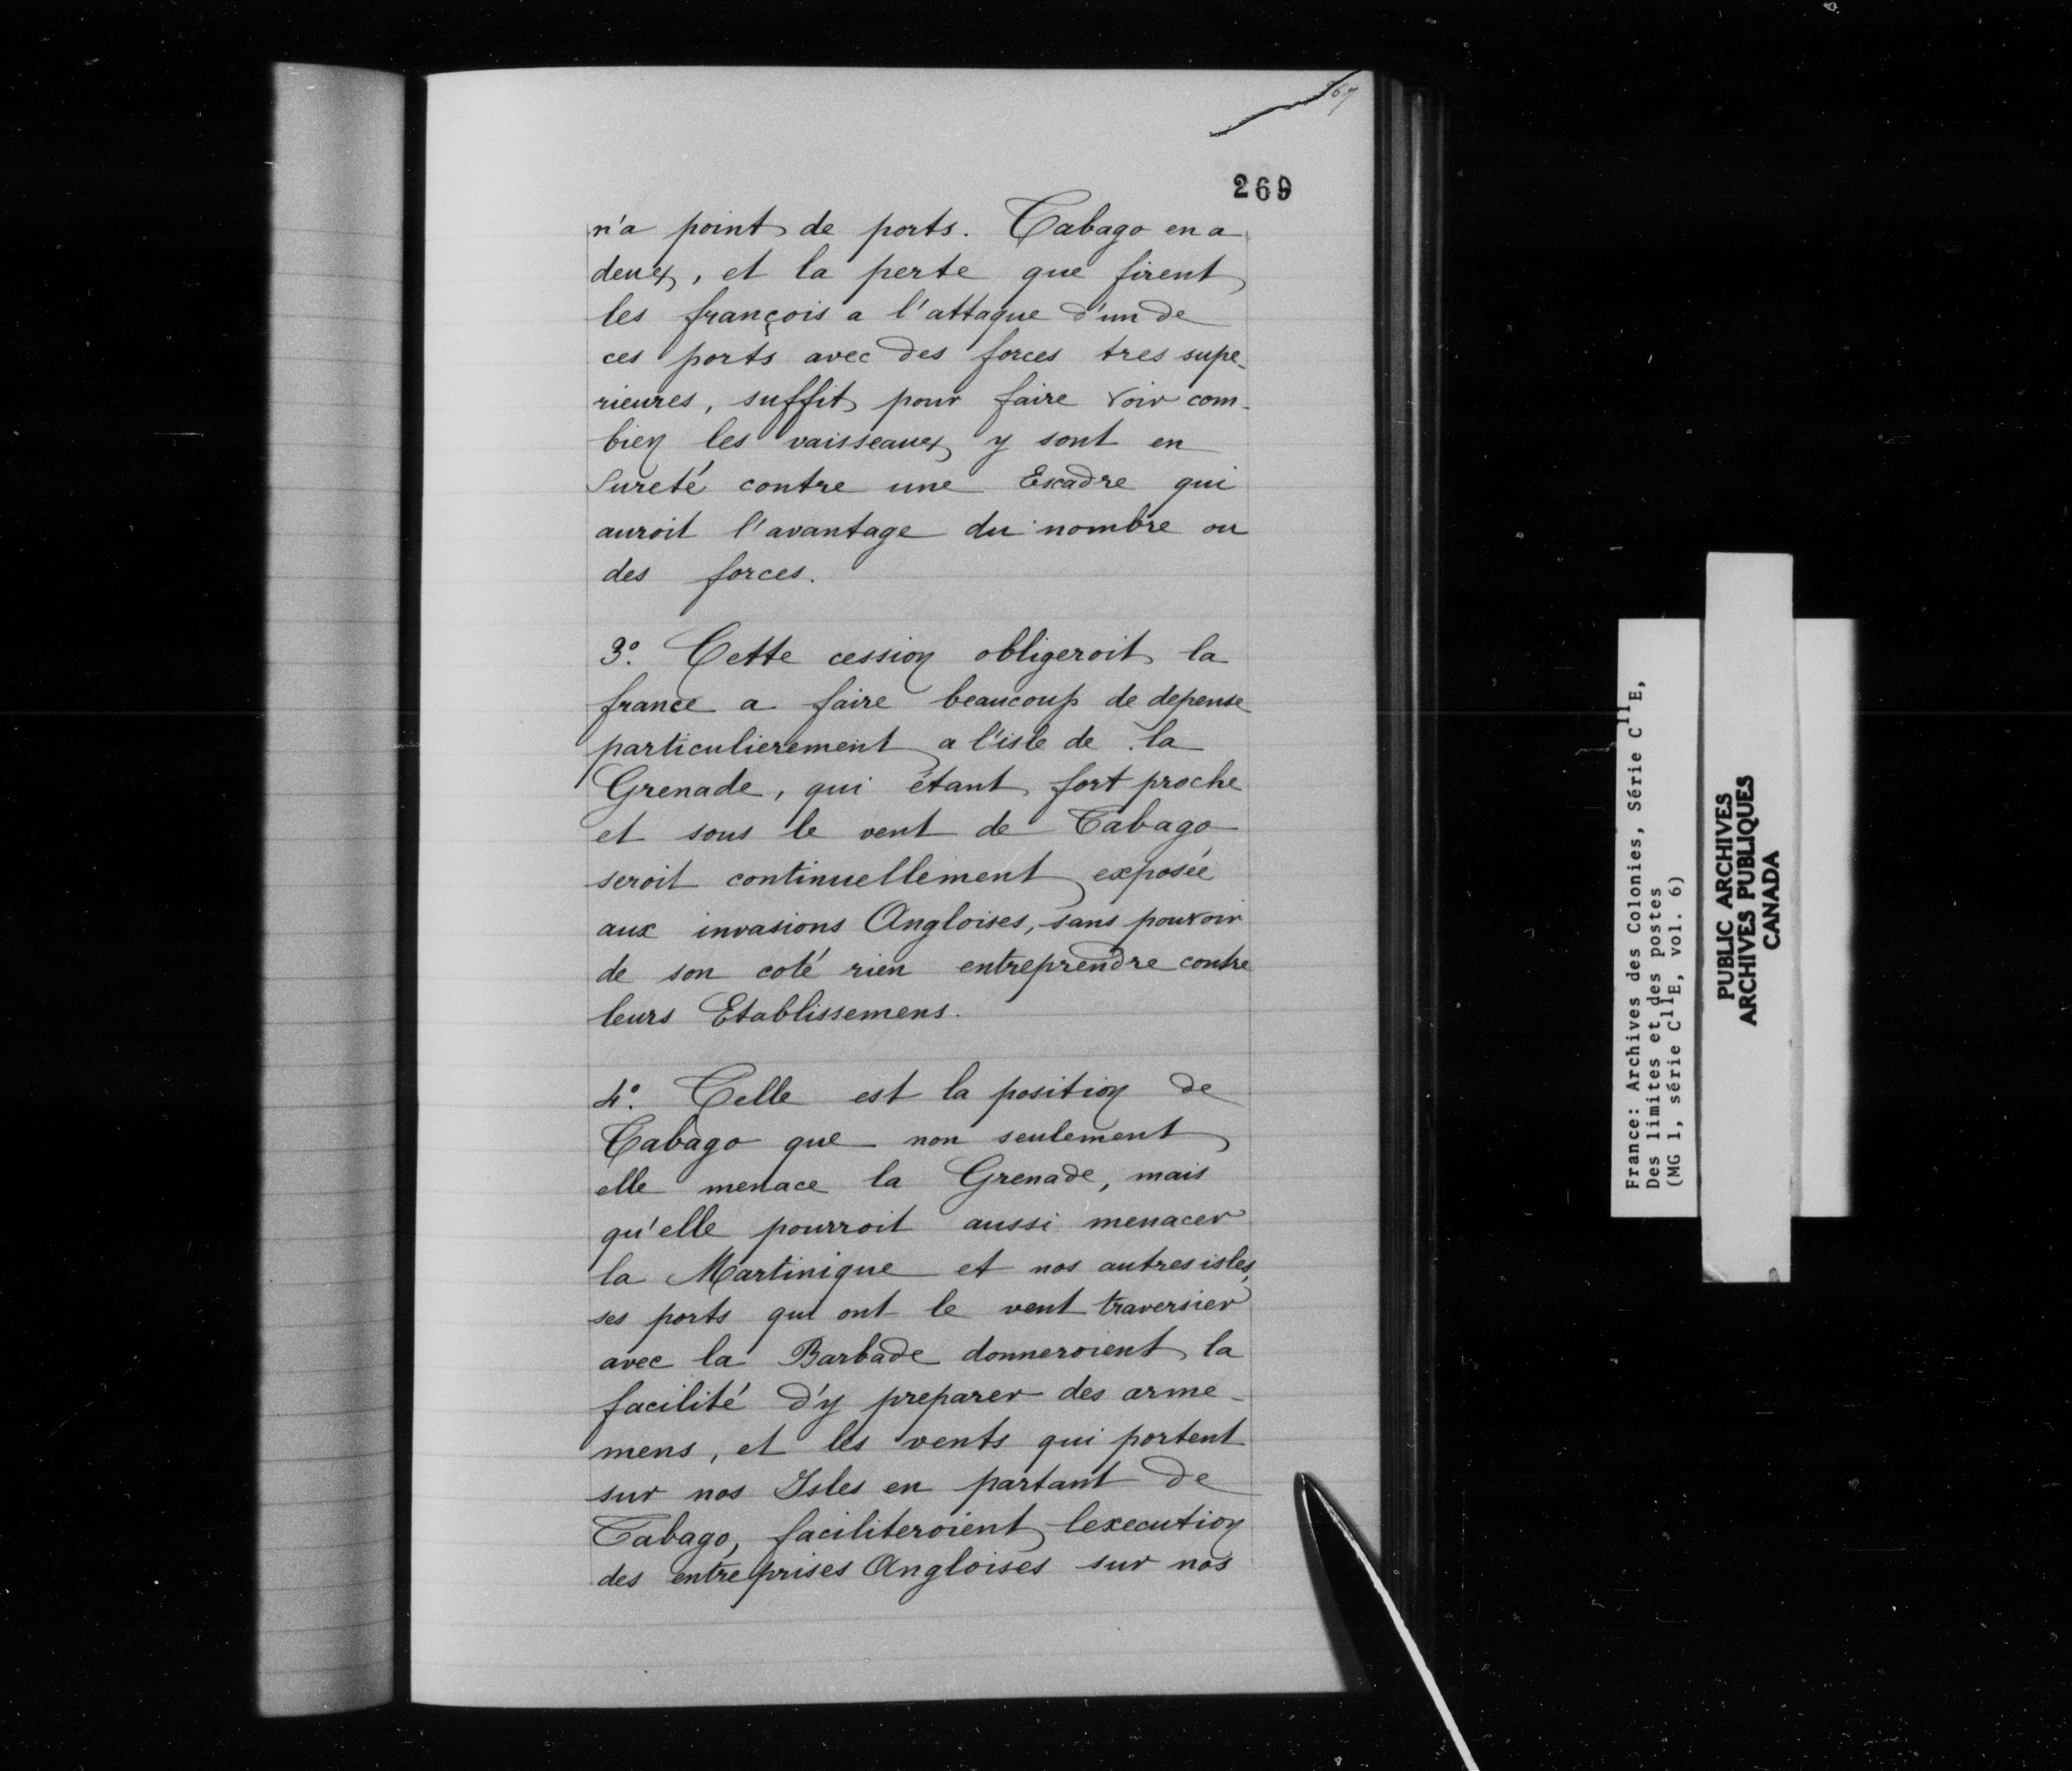 269
n'a point de ports. Tabago en a
deux, et la perte que firent
les françois a l'attaque d'un de
ces ports avec des forces tres supe-
rieures, suffit pour faire voir com-
bien les vaisseaux y sont en
Sureté contre une Escadre qui
auroit l'avantage du nombre ou
des forces.
3º. Cette cession obligeroit la
france a faire beaucoup de depense
particulierement a l'isle de la
Grenade, qui étant fort proche
et sous le vent de Tabago
seroit continuellement exposée
aux invasions Angloises, sans pouvoir
de son coté rien entreprendre contre
leurs Etablissemens.
4º. Telle est la position de
Tabago que non seulement
elle menace la Grenade, mais
qu'elle pourroit aussi menacer
la Martinique et nos autres isles,
ses ports qui ont le vent traversier
avec la Barbade donneroient la
facilité d'y preparer des arme-
mens, et les vents qui portent
sur nos Isles en partant de
Tabago, faciliteroient lexecution
des entreprises Angloises sur nos
France: Archives des Colonies, Série C11E,
Des limites et des postes
(MG 1, série C11E, vol. 6)
PUBLIC ARCHIVES
ARCHIVES PUBLIQUES
CANADA